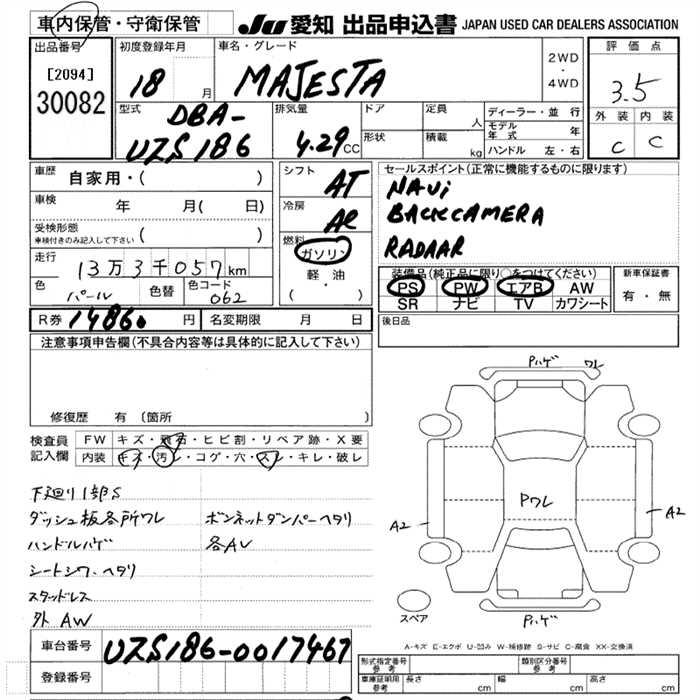 車内保管・守衛保管
JU 愛知 出品申込書 JAPAN USED CAR DEALERS ASSOCIATION
出品番号
[2094]
30082
初度登録年月
18 月
車名・グレード
MAJESTA
2WD
・
4WD
評価点
3.5
外装 内装
C C
型式
DBA-
UZS186
排気量
4.29 CC
ドア
形状
定員
人
積載
kg
ディーラー・並行
モデル年式 年
ハンドル 左・右
車歴
自家用・( )
車検
年 月( 日)
受検形態
車検付きのみ記入して下さい ( )
走行
13万3千057km
色
パール
色替
色コード
062
シフト
AT
冷房
AC
燃料
ガソリン
軽・油
( ・ )
セールスポイント(正常に機能するものに限ります)
NAVi
BACKCAMERA
RADAAR
装備品(純正品に限り○をつけてください)
PS PW エアB AW
SR ナビ TV カワシート
新車保証書
有・無
R券 14860 円
名変期限 月 日
後日品
注意事項申告欄(不具合内容等は具体的に記入して下さい)
修復歴 有(箇所 )
検査員記入欄
FW キズ・飛石・ヒビ割・リペア跡・X要
内装 キズ・汚レ・コゲ・穴・スレ・キレ・破レ
下廻り1部S
ダッシュ板各所ワレ ボンネットダンパーヘタリ
ハンドルハゲ 各AU
シートシワ、ヘタリ
スタッドレス
外 AW
Pハゲ ワレ
Pワレ
A2
A2
Pハゲ
スペア
A-キズ E-エクボ U-凹み W-補修跡 S-サビ C-腐食 XX-交換済
車台番号
UZS186-0017467
登録番号
形式指定番号
参考
類別区分番号
参考
車庫証明用
参考
長さ cm
幅 cm
高さ cm